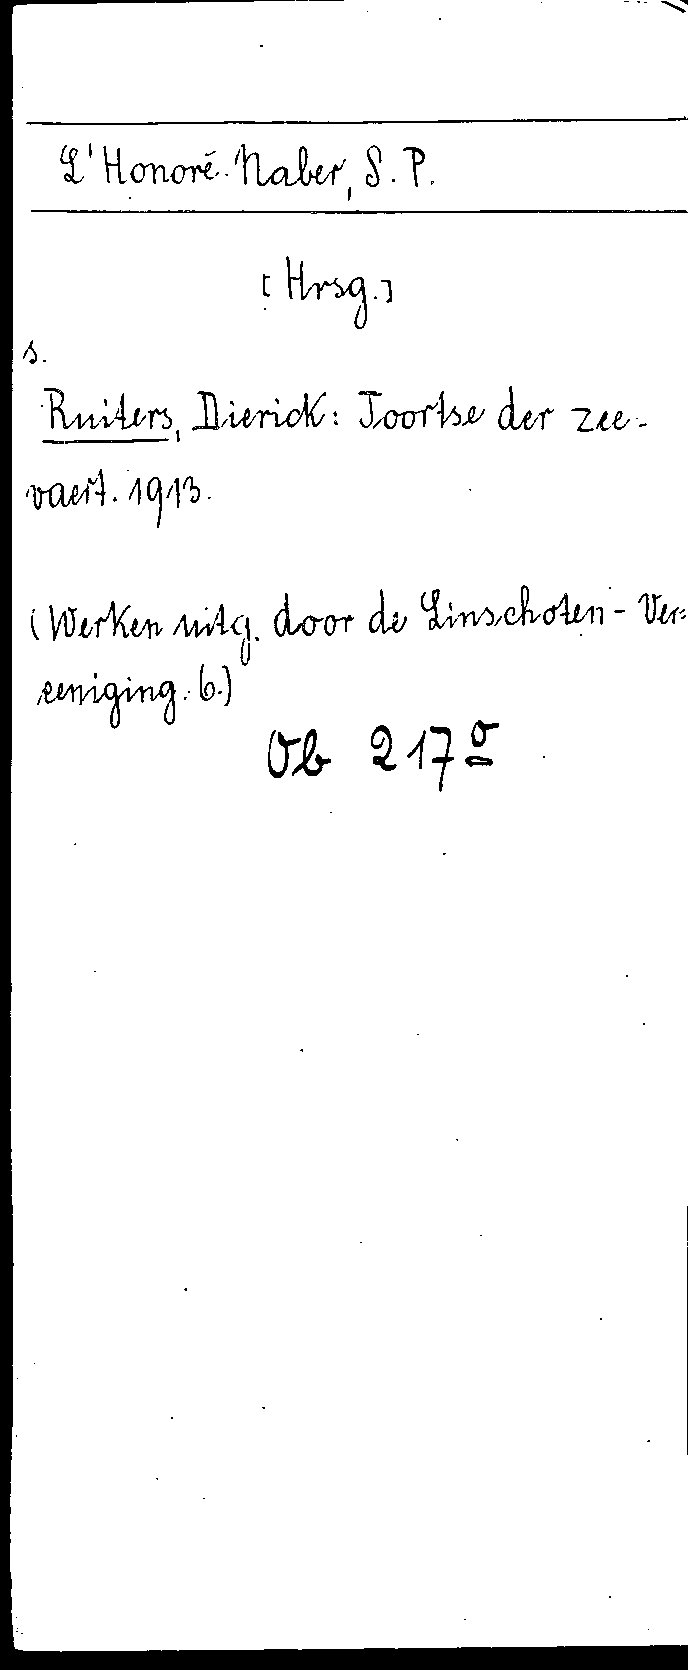 L'Honoré Naber, S. P.
[Hrsg.]
s.
Ruiters, Dierick: Toortse der zee-
vaert. 1913.
(Werken uitg. door de Linschoten-Ver-
eeniging. 6.)
Ob 217º